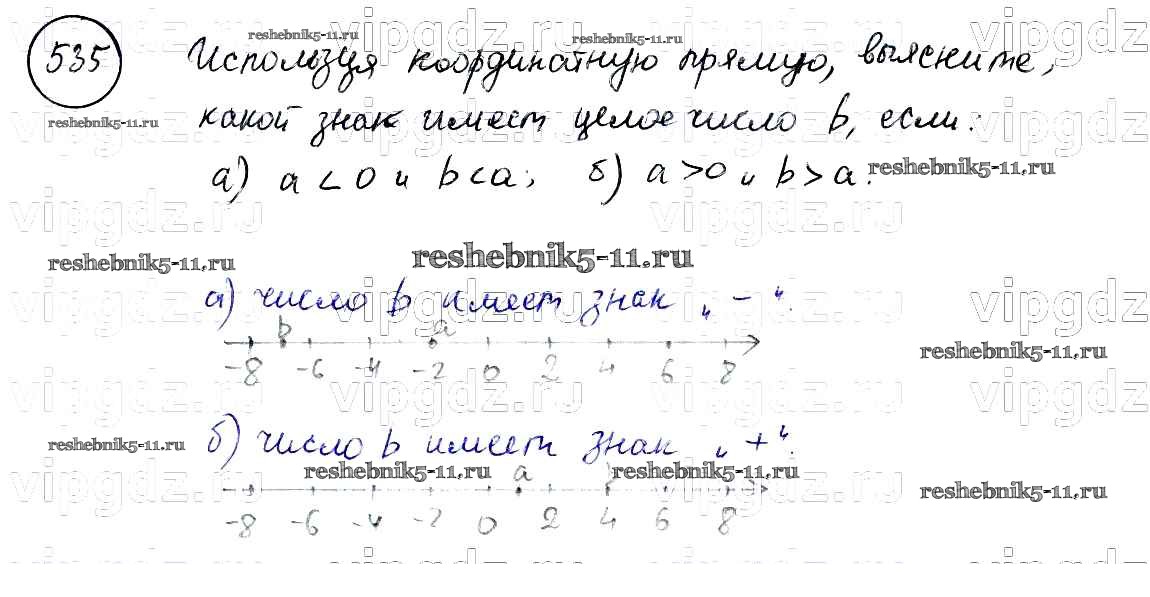 535 Используя координатную прямую, выясните,
какой знак имеет целое число b, если:
а) a < 0 и b < a; б) a > 0 и b > a.
а) число b имеет знак „ – “.
b a
-8 -6 -4 -2 0 2 4 6 8
б) число b имеет знак „ + “.
a
-8 -6 -4 -2 0 2 4 6 8
vipgdz.ru
reshebnik5-11.ru